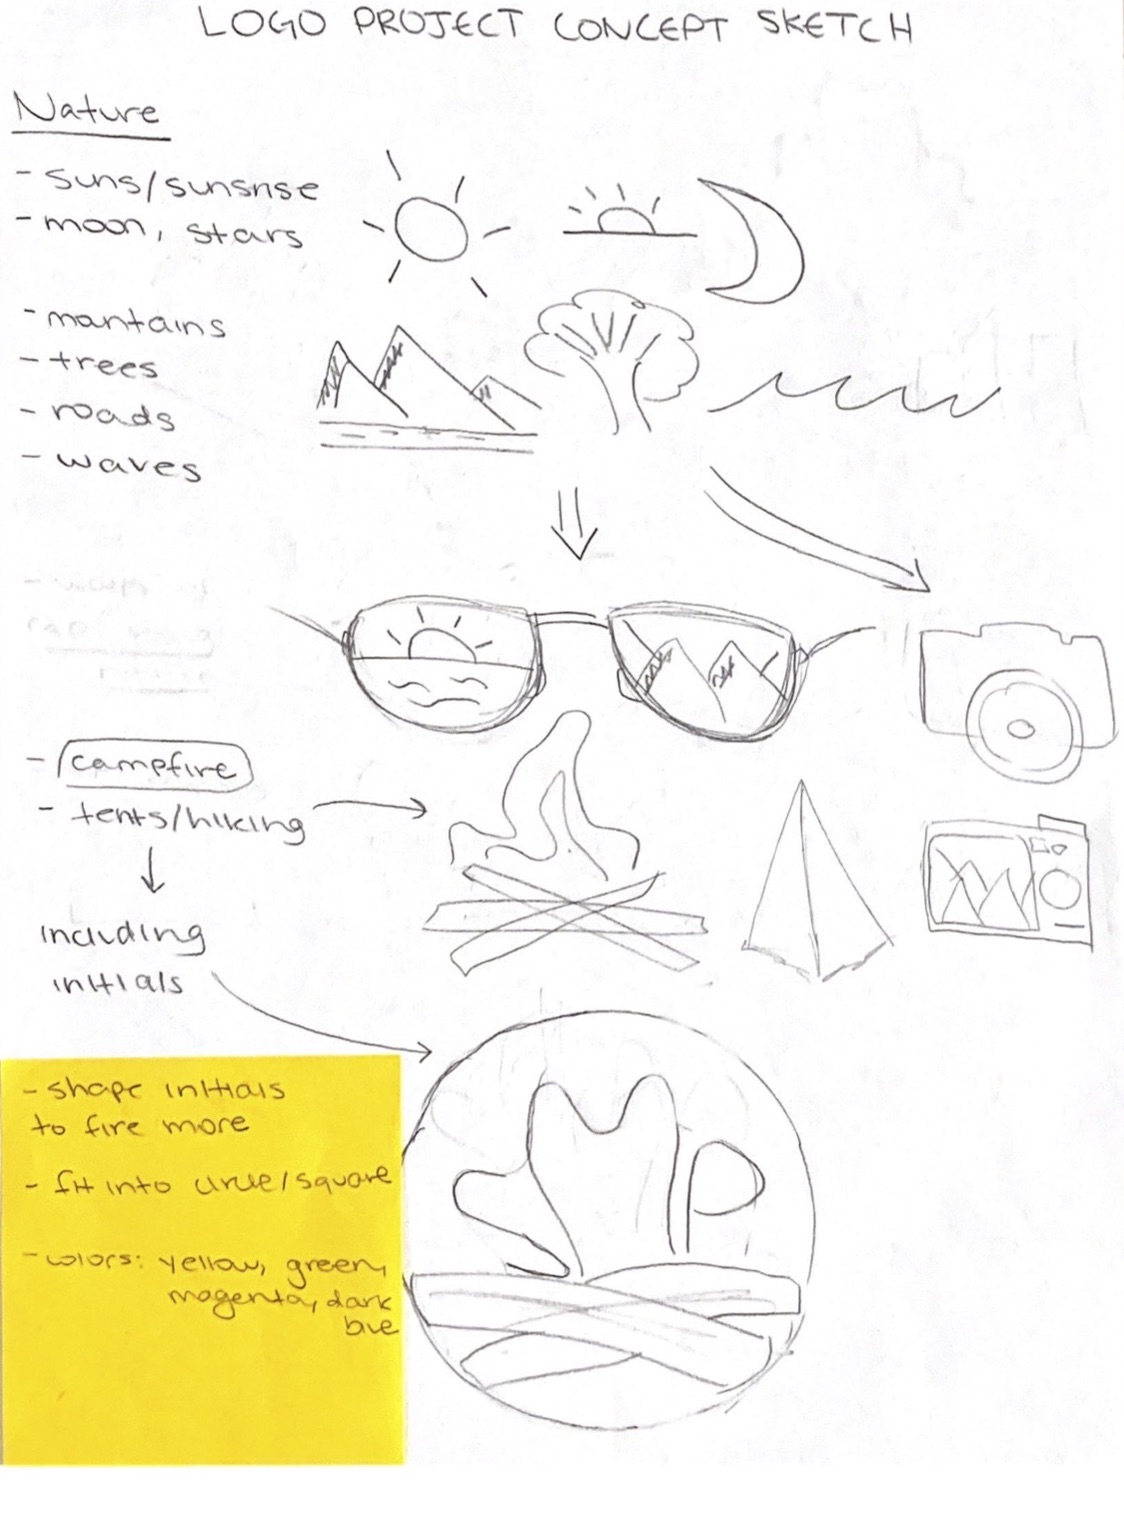 LOGO PROJECT CONCEPT SKETCH
Nature
- suns/sunsrise
- moon, stars
- mantains
- trees
- roads
- waves
- campfire
- tents/hiking
including
initials
- shape initials
to fire more
- fit into circle/square
- colors: yellow, green,
magenta, dark
blue
SMP